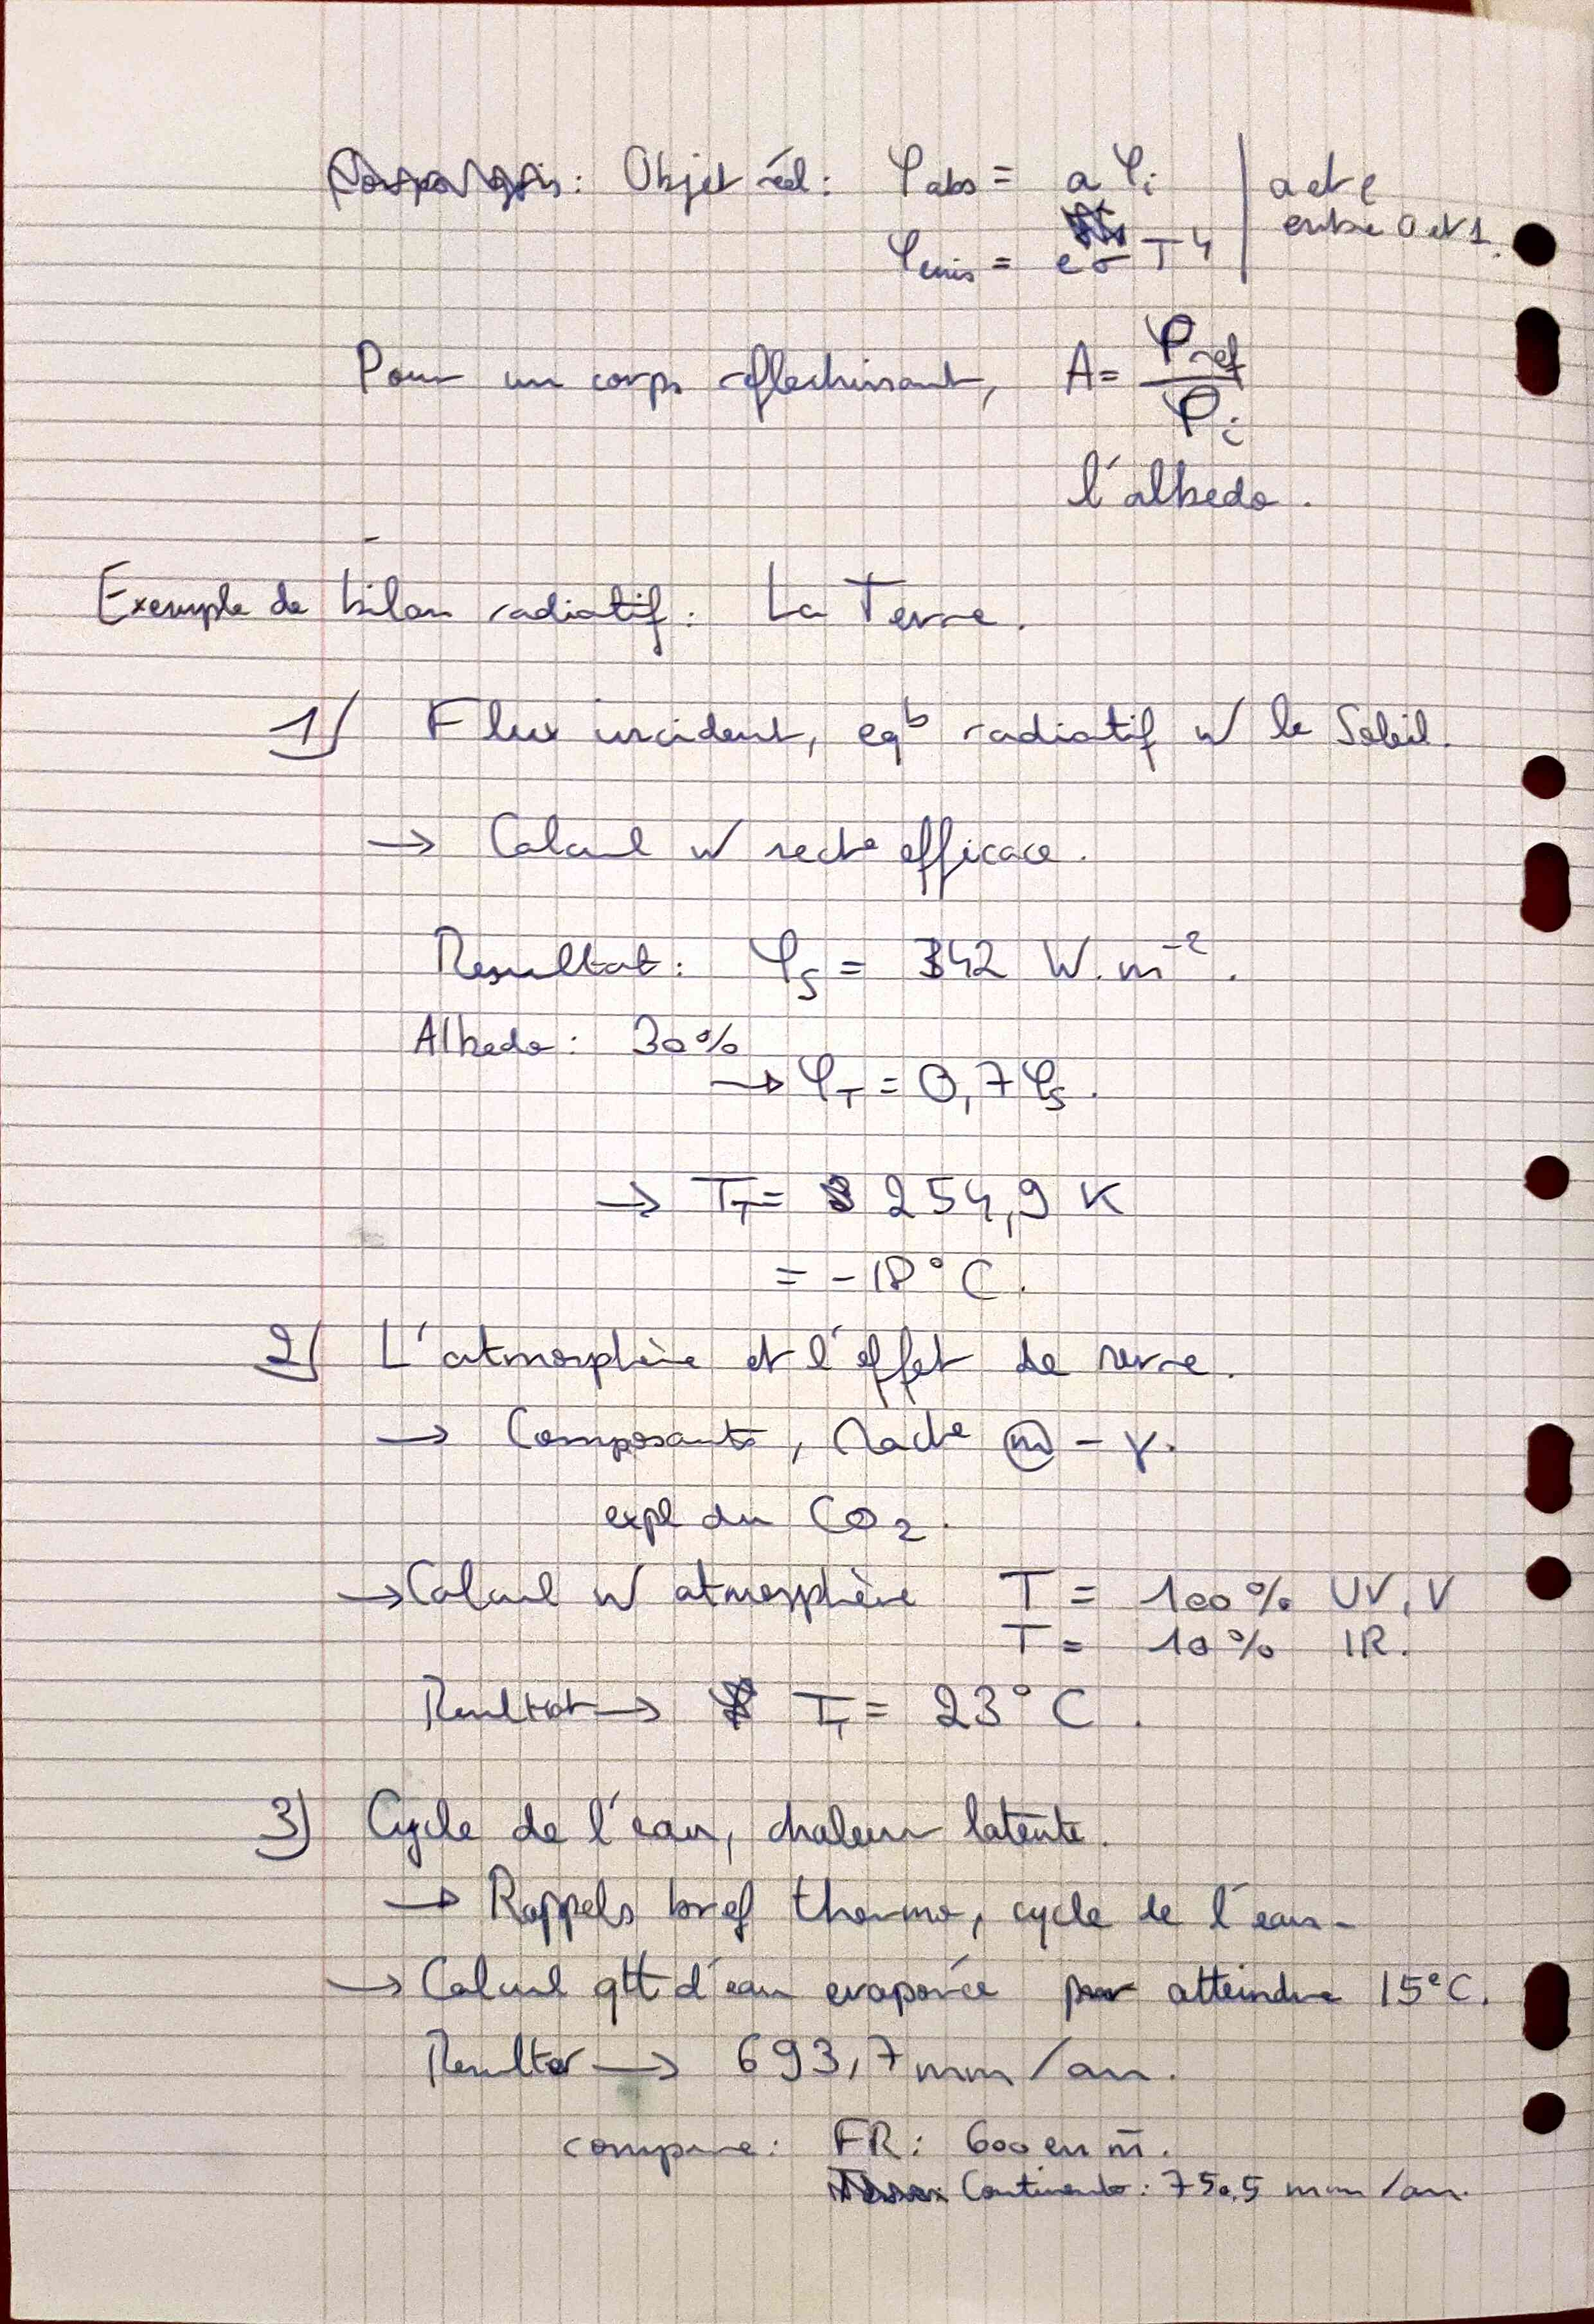 : Objet réel : φabs = a φi | a et e
entre 0 et 1.
φemis = e σ T⁴
Pour un corps reflechissant, A = φref / φi
l'albedo.
Exemple de bilan radiatif : La Terre.
1) Flux incident, eqb radiatif w/ le Soleil.
→ Calcul w/ sect° efficace.
Resultat : φS = 342 W.m⁻².
Albedo : 30%
→ φT = 0,7 φS.
→ TT = 254,9 K
= -18°C.
2) L'atmosphère et l'effet de serre.
→ Composants, m - γ.
expl du CO2.
→ Calcul w/ atmosphère T = 100% UV, V
T = 10% IR.
Resultat → TT = 23°C.
3) Cycle de l'eau, chaleur latente.
→ Rappels bref thermo, cycle de l'eau.
→ Calcul qtt d'eau evaporée pour atteindre 15°C.
Resultat → 693,7 mm/an.
compare : FR : 600 en m̄.
Continents : 750,5 mm/an.